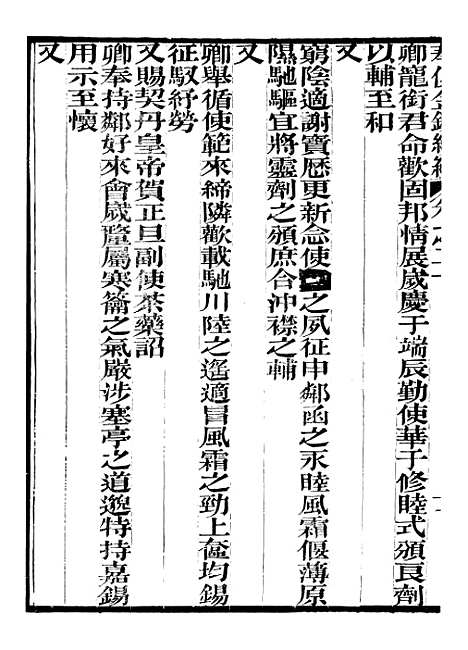 奉使金鑑續編 卷之二十
卿寵銜君命歡固邦情展歲慶于端辰勤使華于修睦式頒良劑
以輔至和
又
窮陰適謝寶歴更新念使之夙征申鄰函之永睦風霜偃薄原
隰馳驅宜將靈劑之頒庶合沖襟之輔
又
卿舉循使範來締隣歡載馳川陸之遙適冒風霜之勁上奩均錫
征馭紓勞
又賜契丹皇帝賀正旦副使茶藥詔
卿奉持鄰好來會歲釐屬寒籥之氣嚴涉塞亭之道邈特持嘉錫
用示至懷
又